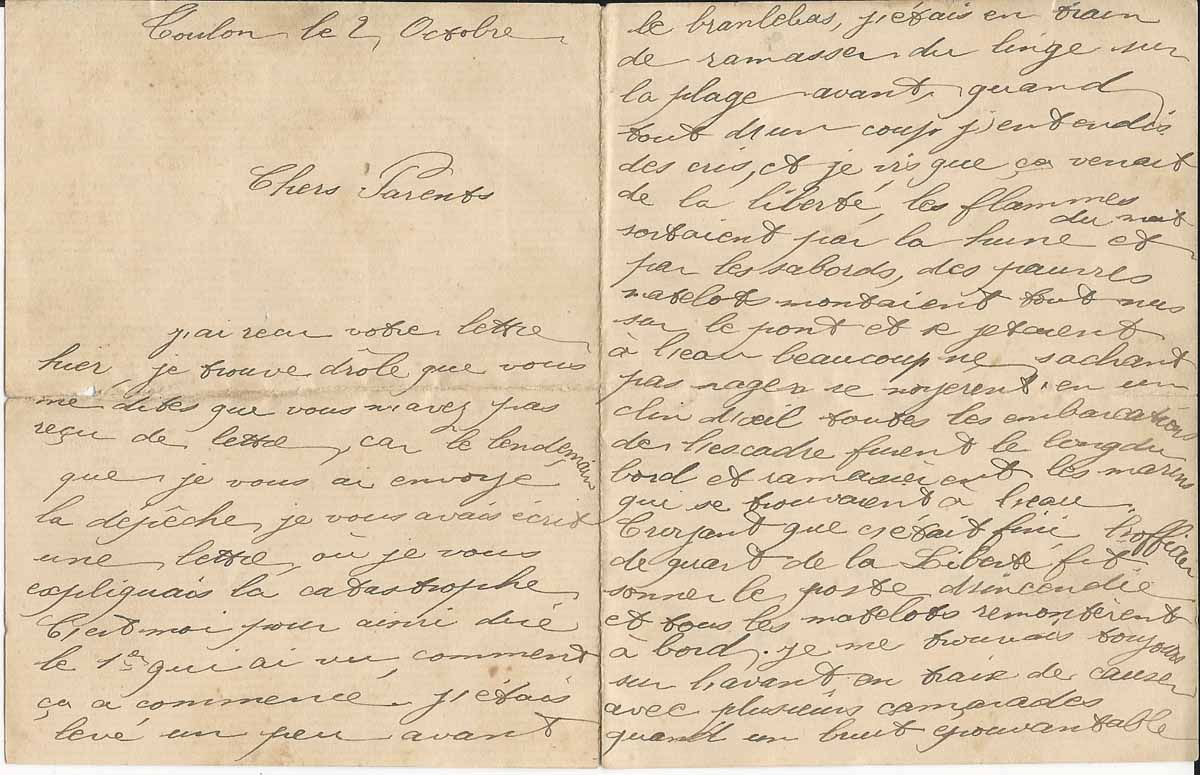 Toulon le 2 Octobre
Chers Parents
j'ai reçu votre lettre
hier, je trouve drôle que vous
me dites que vous n'avez pas
reçu de lettre, car le lendemain
que je vous ai envoyé
la dépêche, je vous avais écrit
une lettre, où je vous
expliquais la catastrophe
C'est moi pour ainsi dire
le 1er qui ai vu, comment
ça a commencé. j'étais
levé un peu avant
le branlebas, j'étais en train
de ramasser du linge sur
la plage avant, quand
tout d'un coup j'entendis
des cris, et je vis que ça venait
de la liberté, les flammes
sortaient par la hune du mat et
par les sabords, des pauvres
matelots montaient tout nus
sur le pont et se jetaient
à l'eau beaucoup ne sachant
pas nager se noyerent, en un
clin d'œil toutes les embarcations
de l'escadre furent le long du
bord et ramassèrent les marins
qui se trouvaient à l'eau.
Croyant que c'était fini, l'officier
de quart de la Liberté fit
sonner le poste d'incendie
et tous les matelots remontèrent
à bord. je me trouvais toujours
sur l'avant en train de causer
avec plusieurs camarades
quand un bruit épouvantable